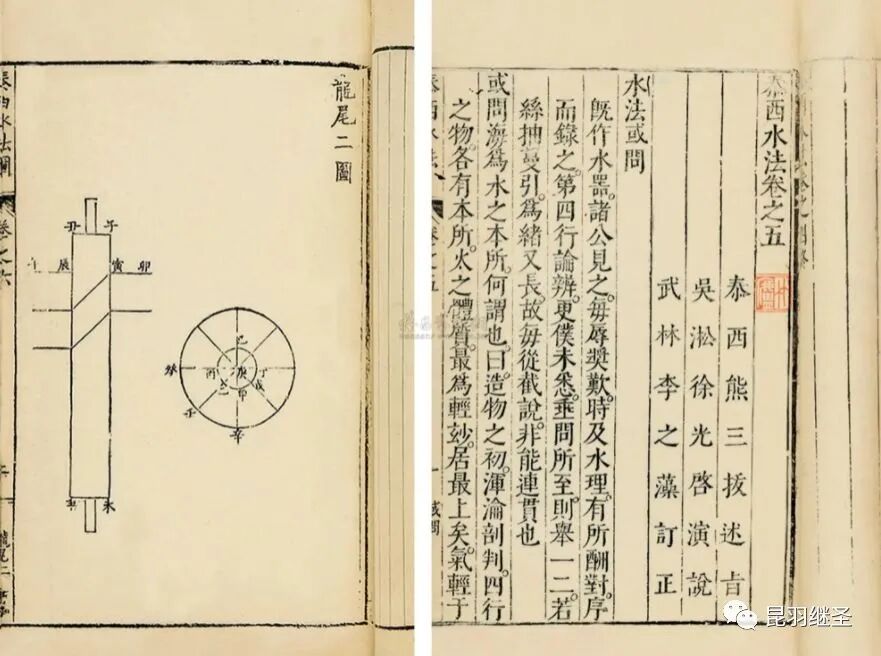 泰西水法卷之五
泰西熊三拔述旨
吳淞徐光啓演說
武林李之藻訂正
水法或問
既作水器。諸公見之。每辱奬歎。時及水理。有所酬對。序
而錄之。第四行論辨。更僕未悉。垂問所至。則舉一二。若
絲抽蔓引。爲緒又長。故每從截說。非能連貫也
或問海爲水之本所。何謂也。曰造物之初。渾淪剖判。四行
之物。各有本所。火之體質。最爲輕玅。居最上矣。氣輕于
泰西水法
卷之五
一
或問
龍尾二圖
丑
子
辰
寅
卯
午
未
己
丙
庚
丁
戊
甲
乙
癸
壬
辛
泰西水法圖
卷之六
龍尾二
昆羽继圣